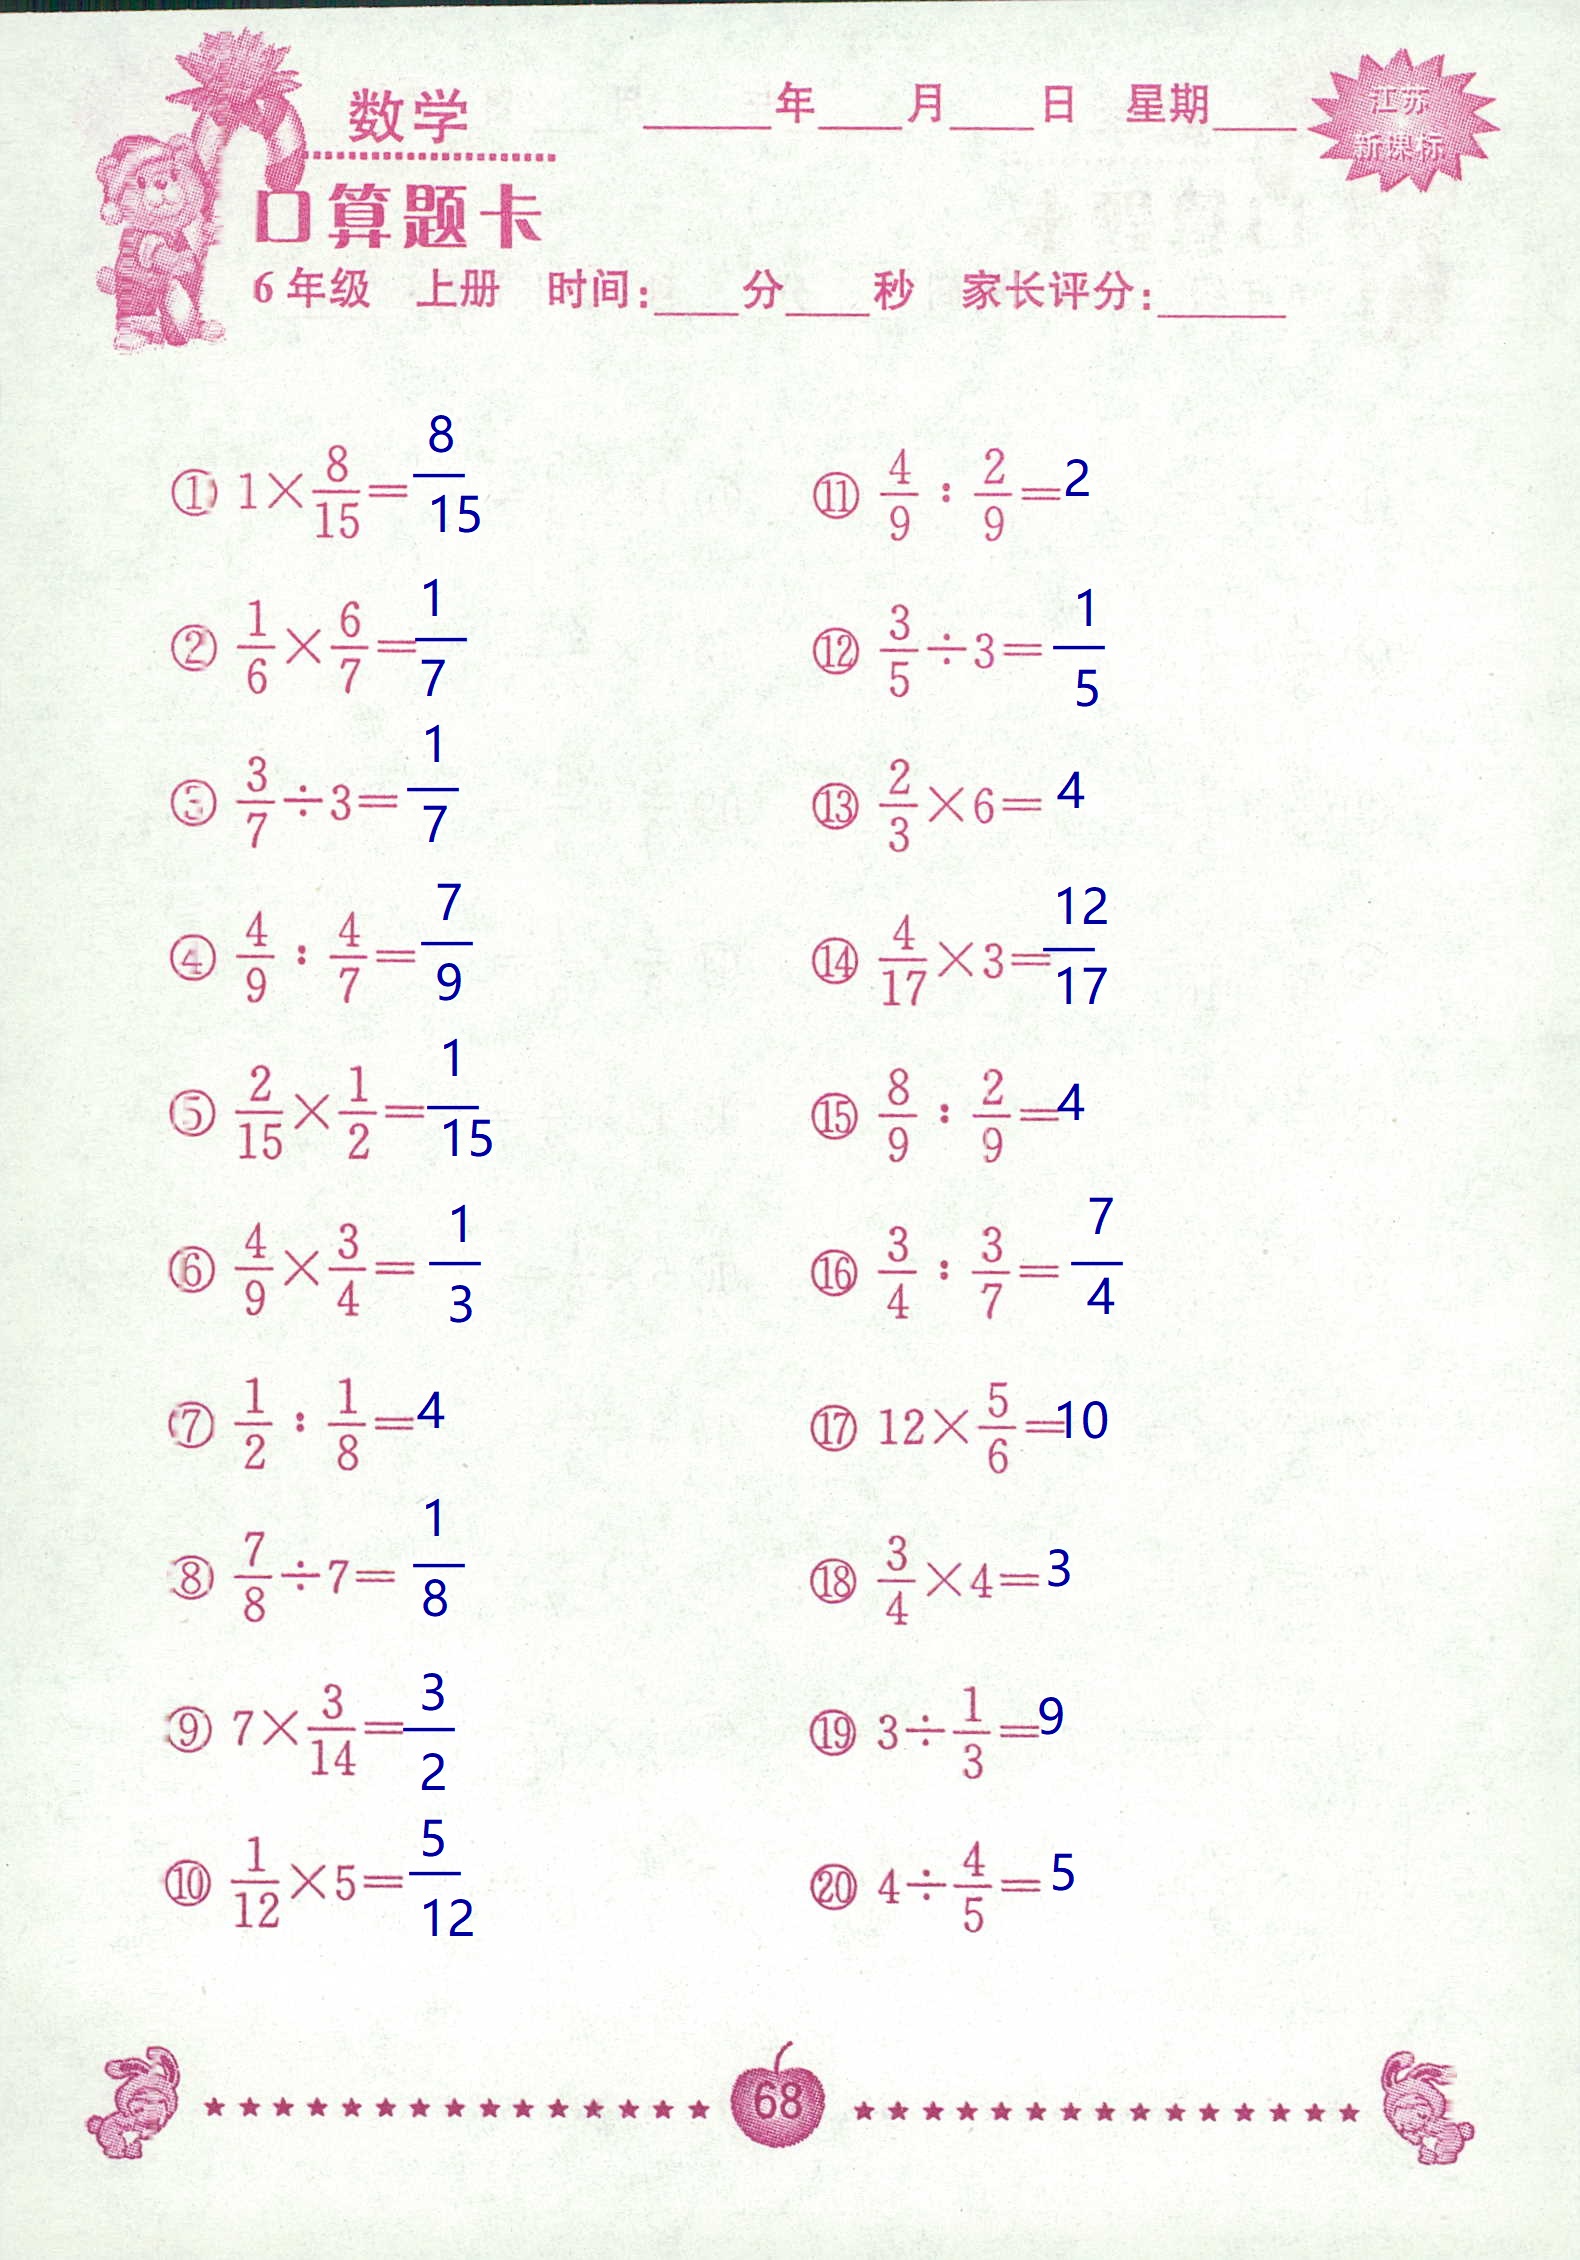 数学
____年____月____日 星期____
江苏
新课标
口算题卡
6年级 上册 时间:____分____秒 家长评分:____
① 1×8/15=8/15
② 1/6×6/7=1/7
③ 3/7÷3=1/7
④ 4/9:4/7=7/9
⑤ 2/15×1/2=1/15
⑥ 4/9×3/4=1/3
⑦ 1/2:1/8=4
⑧ 7/8÷7=1/8
⑨ 7×3/14=3/2
⑩ 1/12×5=5/12
⑪ 4/9:2/9=2
⑫ 3/5÷3=1/5
⑬ 2/3×6=4
⑭ 4/17×3=12/17
⑮ 8/9:2/9=4
⑯ 3/4:3/7=7/4
⑰ 12×5/6=10
⑱ 3/4×4=3
⑲ 3÷1/3=9
⑳ 4÷4/5=5
68